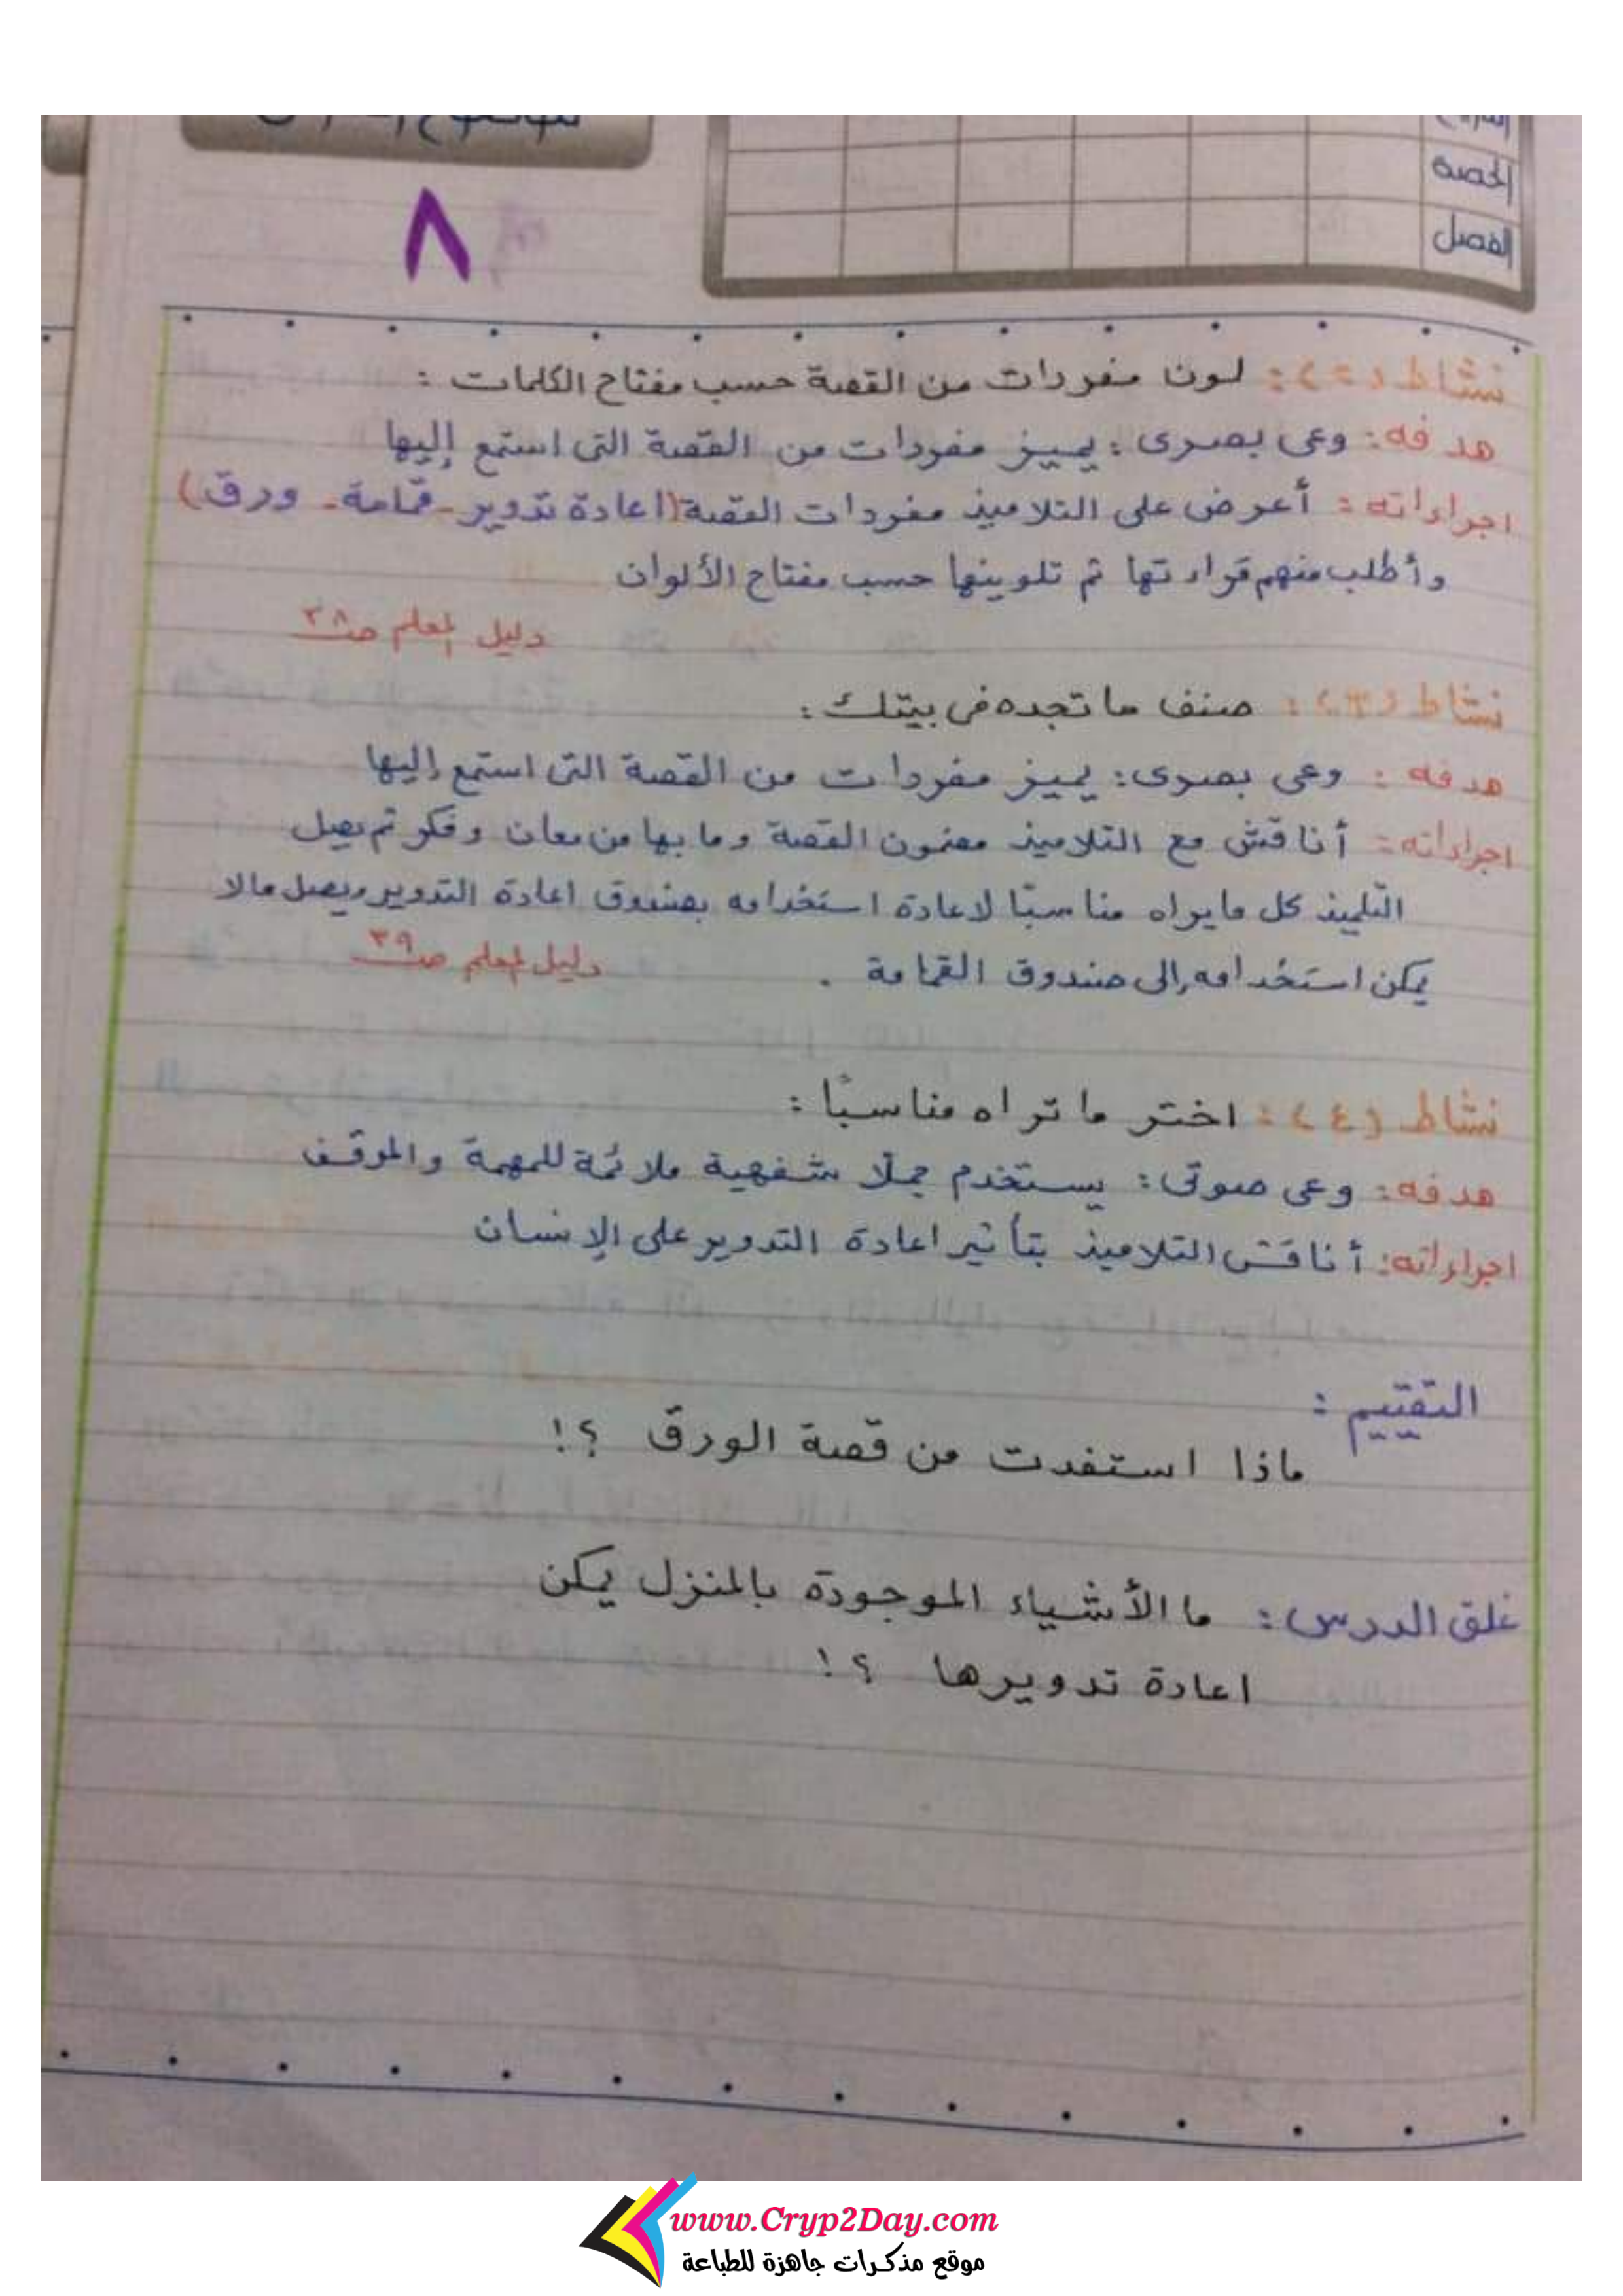 الحصة
الفصل
٨
نشاط (٢): لون مفردات من القصة حسب مفتاح الكلمات :
هدفه: وعى بصرى: يميز مفردات من القصة التى استمع إليها
اجراءاته: أعرض على التلاميذ مفردات القصة (اعادة تدوير - قمامة - ورق)
وأطلب منهم قراءتها ثم تلوينها حسب مفتاح الألوان
دليل المعلم صـ٣٨
نشاط (٣): صنف ما تجده فى بيتك :
هدفه : وعى بصرى: يميز مفردات من القصة التى استمع إليها
اجراءاته: أناقش مع التلاميذ مضمون القصة وما بها من معان وفكر ثم يصل
التلميذ كل ما يراه مناسبًا لاعادة استخدامه بصندوق اعادة التدوير ويصل مالا
يمكن استخدامه إلى صندوق القمامة .
دليل المعلم صـ٣٩
نشاط (٤): اختر ما تراه مناسبًا :
هدفه: وعى صوتى: يستخدم جملًا شفهية ملائمة للمهمة والموقف
اجراءاته: أناقش التلاميذ بتأثير اعادة التدوير على الإنسان
التقييم :
ماذا استفدت من قصة الورق ؟!
غلق الدرس: ما الأشياء الموجودة بالمنزل يمكن
اعادة تدويرها ؟!
www.Cryp2Day.com
موقع مذكرات جاهزة للطباعة